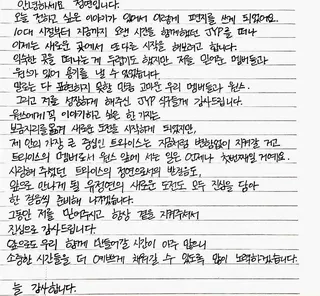 안녕하세요 정연입니다.
오늘 전하고 싶은 이야기가 있어서 이렇게 편지를 쓰게 되었어요.
10대 시절부터 지금까지 오랜 시간을 함께했던 JYP를 떠나
이제는 새로운 곳에서 또다른 시작을 해보려고 합니다.
익숙한 곳을 떠나는 게 두렵기도 했지만 저를 믿어준 멤버들과
원스가 있어 용기를 낼 수 있었습니다.
말로는 다 표현하지 못할 만큼 고마운 우리 멤버들과 원스.
그리고 저를 성장하게 해주신 JYP 식구들께 감사드립니다.
원스에게 꼭 이야기하고 싶은 한 가지는
보금자리를 옮겨 새로운 도전을 시작하게 되었지만,
제 안의 가장 큰 중심인 트와이스는 지금처럼 변함없이 지켜갈 거고
트와이스의 멤버로서 원스 앞에 서는 일은 언제나 첫번째일 거예요.
사랑해 주셨던 트와이스의 정연으로서의 반경도,
앞으로 만나게 될 유정연의 새로운 도전도 모두 진심을 담아
한 걸음씩 준비해 나가겠습니다.
그동안 저를 믿어주시고 항상 곁을 지켜주셔서
진심으로 감사드립니다.
앞으로도 우리 함께 만들어갈 시간이 아주 많으니
소중한 시간들을 더 예쁘게 채워갈 수 있도록 많이 노력하겠습니다.
늘 감사합니다.